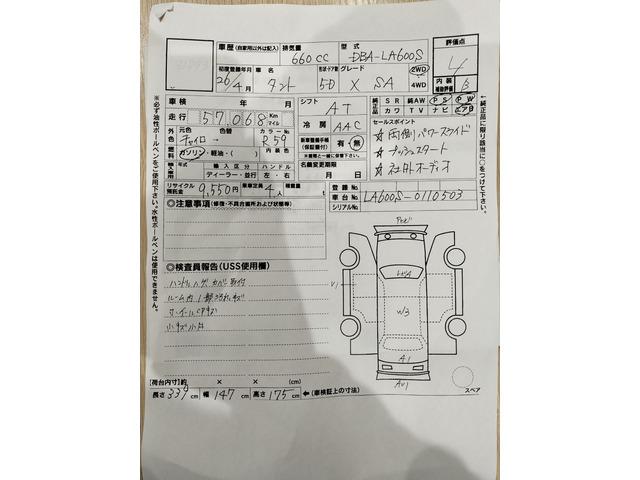 車歴 (自家用以外は記入) 排気量 660cc 型式 DBA-LA600S 評価点 4
初度登録年月 26/4月 車名 タント 形状ドア数 5D グレード X SA 2WD 4WD 内装補助評価 B
車検 年 月
走行 57,068 Km マイル
シフト AT
冷房 AAC
純正品 SR 純AW PS PW
カワ TV ナビ エアB
外元色 チャイロ→ 色替 カラーNo R59
燃料 ガソリン・軽油・( ) 内装色 ( )
新車整備手帳(保証書付) 有・無
※実際と一緒に保管下さい。
セールスポイント
☆両側パワースライド
☆プッシュスタート
☆社外オーディオ
年式 輸入区分 ハンドル
ディーラー・並行 左・右
名義変更期限 月 日
リサイクル預託金 9,550円 乗車定員 4人 積載量 t
登録No.
車台No. LA600S-0110503
シリアルNo.
◎注意事項 (修復・不具合箇所および状態等)
◎検査員報告 (USS使用欄)
ハンドルハゲ カバー取付
小キズ小凹
V1
W3
A1
AU1
スペア
【荷台内寸】約 × × (cm)
長さ 339 cm 幅 147 cm 高さ 175 cm ←(車検証上の寸法)
※必ず油性ボールペンをご使用下さい。水性ボールペンは使用できません。
←純正品に限り該当に○をつけて下さい。